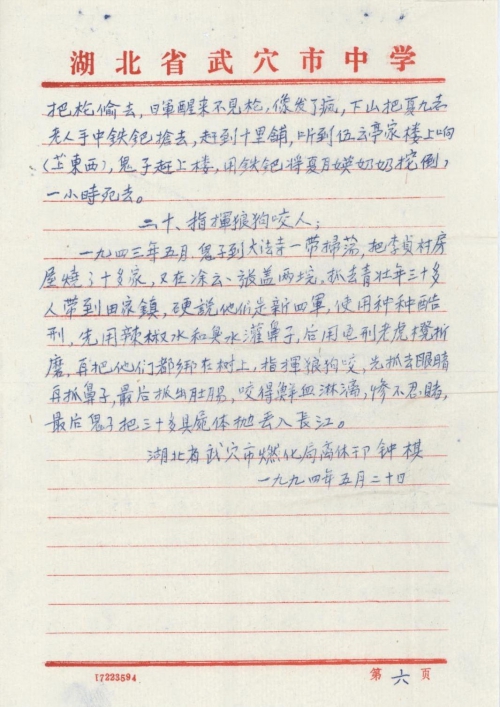 湖北省武穴市中学
把枪偷去，日軍醒来不見枪，像发了疯，下山把夏九
老人手中鉄鈀搶去，赶到十里舖，听到伍云亭家楼上响
（芷東西），鬼子赶上楼，用鉄鈀将夏瑛奶奶挖倒，
一小時死去。
二十、指揮狼狗咬人：
一九四三年五月，鬼子到大法寺一带掃蕩，把李貞村房
屋燒了十多家，又在涂云、張盖两垸，抓去青壮年三十多
人带到田家鎮，硬說他们是新四軍，使用种种酷
刑，先用辣椒水和臭水灌鼻子，后用电刑老虎櫈折
磨，再把他们都绑在树上，指揮狼狗咬，先抓去眼睛
再抓鼻子，最后抓出肚腸，咬得鮮血淋漓，惨不忍睹，
最后鬼子把三十多具屍体抛丢入長江。
湖北省武穴市燃化局离休 鈡棋
一九九四年五月二十日
17223594
第六页